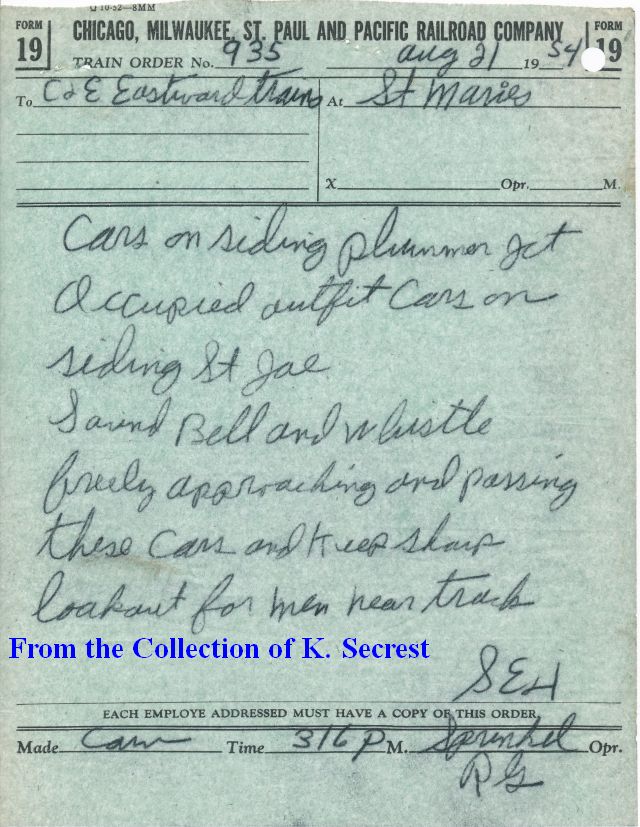 Q 10-52—8MM
FORM 19 CHICAGO, MILWAUKEE, ST. PAUL AND PACIFIC RAILROAD COMPANY FORM 19
TRAIN ORDER No. 935 Aug 21 1954
To C&E Eastward trains At St Maries
X Opr. M.
Cars on siding plummer Jct
Occupied outfit Cars on
siding St Joe
Sound Bell and whistle
freely approaching and passing
these Cars and Keep sharp
lookout for men near track
From the Collection of K. Secrest
SEH
EACH EMPLOYE ADDRESSED MUST HAVE A COPY OF THIS ORDER
Made Com Time 316 P M. Sprinkel Opr.
RG